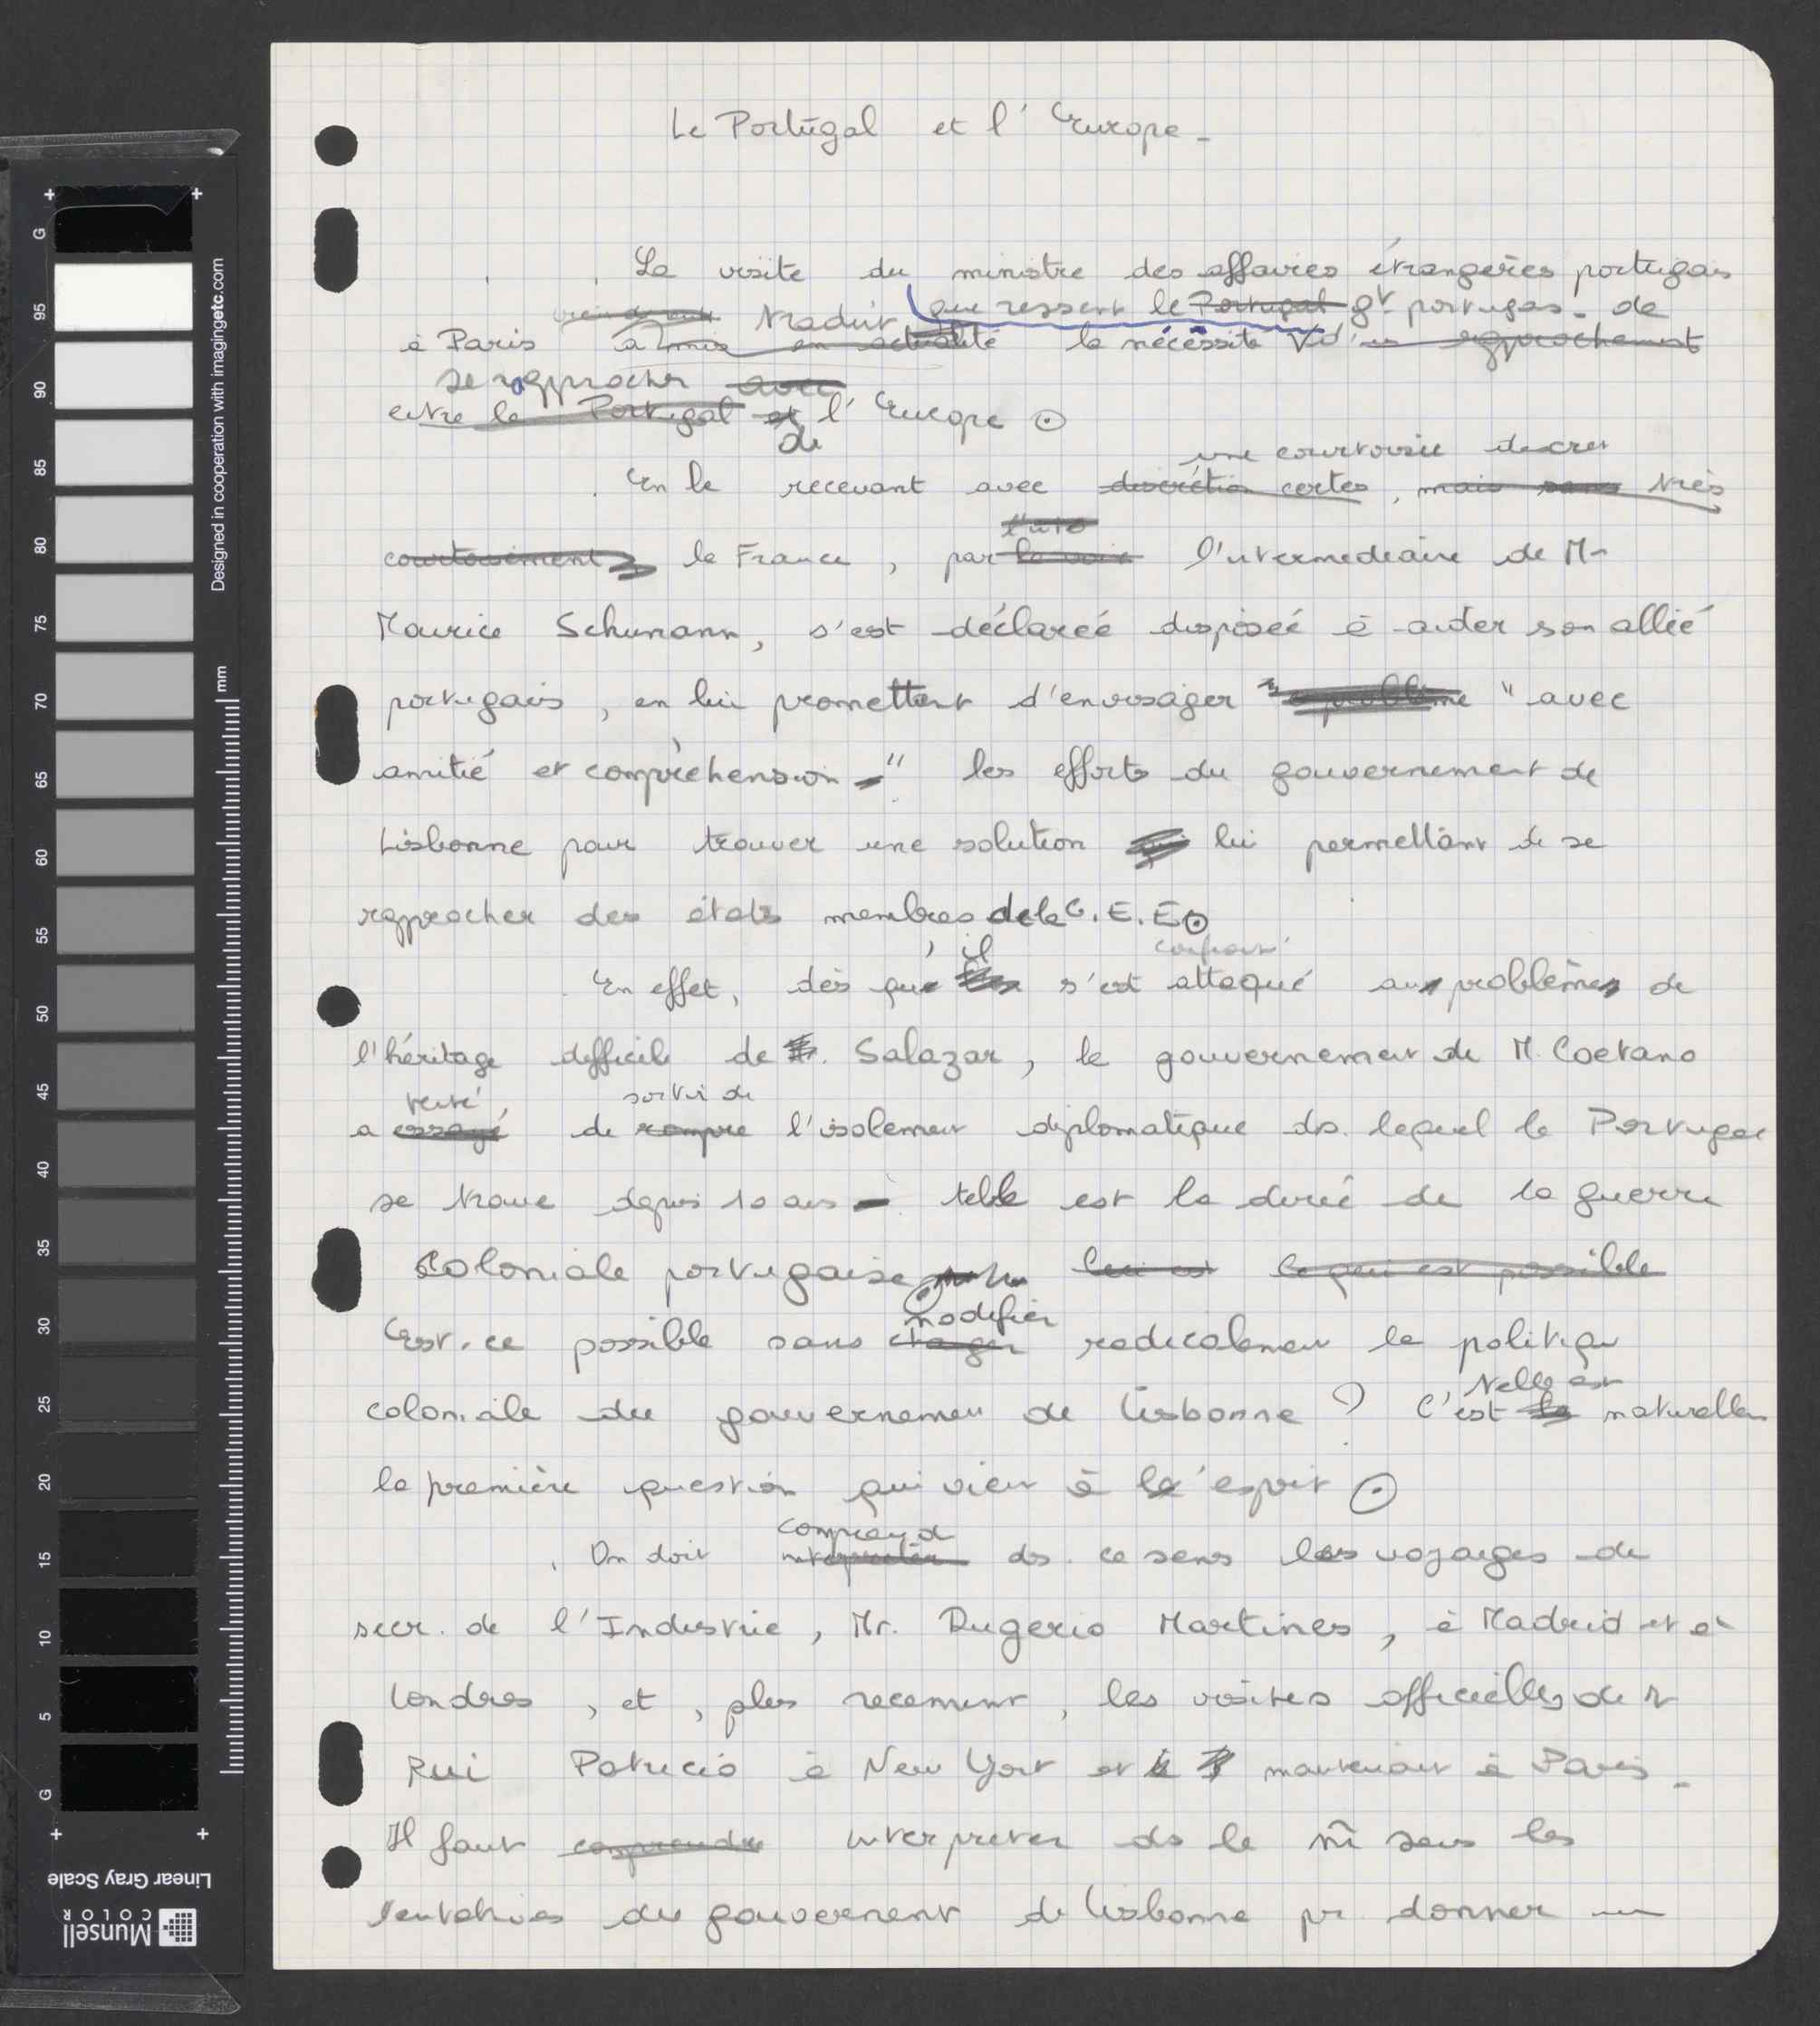 Le Portugal et l'Europe -
La visite du ministre des affaires étrangères portugais
traduit que ressent le Portugal gt portugais - de
à Paris a mis en actualité la nécéssité d'un rapprochement
se rapprocher avec
entre le Portugal et l'Europe
de
une courtoisie discret
En le recevant avec discrétion certes, mais sans très
courtoisement la France, par la voix l'intermediaire de M-
Maurice Schumann, s'est déclareé disposeé à aider son allié
portugais, en lui promettant d'envisager problème "avec
amitié et compréhension" les efforts du gouvernement de
Lisbonne pour trouver une solution qui lui permettant de se
rapprocher des états membres de la C.E.E.
' il confront
En effet, dès que s'est attaqué aux problèmes de
l'héritage difficile de Salazar, le gouvernement de M. Caetano
tenté, sortir de
a essayé de rompre l'isolement diplomatique ds. lequel le Portugal
se trouve depuis 10 ans - telle est la dureé de la guerre
coloniale portugaise ce qui est possible
modifier
Est-ce possible sans changer radicalement la politique
Telle est
coloniale du gouvernement de Lisbonne ? C'est la naturellem
la première question qui vient à l'esprit
comprend
On doit interpréter ds. ce sens les voyages de
secr. de l'Industrie, Mr. Rugerio Martines, à Madrid et à
Londres, et, plus recemment, les visites officielles de M
Rui Patricio à New York et maintenant à Paris -
Il faut comprendre interpreter ds le m̃ sens les
tentatives du gouvernement de Lisbonne pr donner un
Designed in cooperation with imagingetc.com
mm
+ +
G
95
90
85
80
75
70
65
60
55
50
45
40
35
30
25
20
15
10
5
G
+ +
Linear Gray Scale
Munsell
COLOR